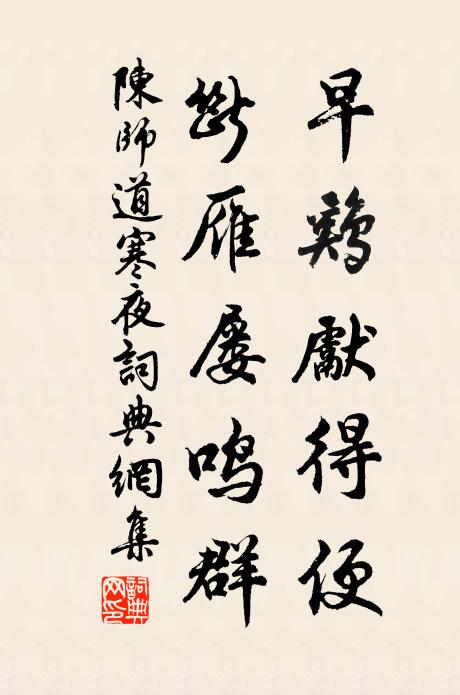 早鷄獻得便
斷雁屢鳴群
陳師道寒夜詞典網集
詞典网印